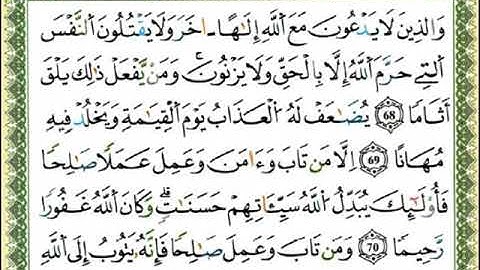 وَالذِينَ لَا يَدْعُونَ مَعَ اَللَّهِ إِلَٰهاً ـ اخَرَ وَلَا يَقْتُلُونَ اَلنَّفْسَ
اَلتِے حَرَّمَ اَللَّهُ إِلَّا بِالْحَقِّ وَلَا يَزْنُونَۖ وَمَنْ يَّفْعَلْ ذَٰلِكَ يَلْقَ
أَثَاماً 68 يُضَٰعَفْ لَهُ اُلْعَذَابُ يَوْمَ اَلْقِيَٰمَةِ وَيَخْلُدْ فِيهِ
مُهَاناً 69 اِلَّا مَن تَابَ وَءَامَنَ وَعَمِلَ عَمَلاً صَٰلِحاً
فَأُوْلَٰٓئِكَ يُبَدِّلُ اُللَّهُ سَيِّـَٔاتِهِمْ حَسَنَٰتٖۖ وَكَانَ اَللَّهُ غَفُوراً
رَّحِيماً 70 وَمَن تَابَ وَعَمِلَ صَٰلِحاً فَإِنَّهُۥ يَتُوبُ إِلَى اَللَّهِ